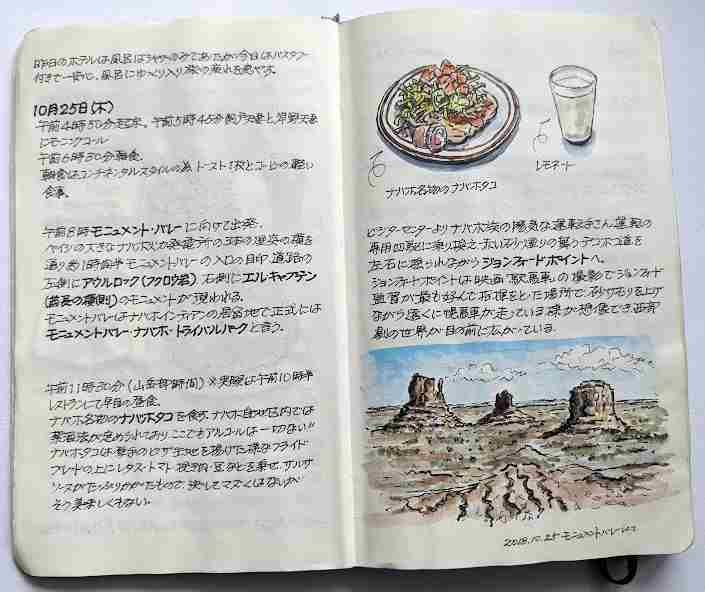 昨日のホテルは風呂はシャワーのみであったが今日はバスタブ
付きで一安心、風呂にゆっくり入り旅の疲れを癒やす。
10月25日(木)
午前4時30分起床。午前5時45分
にモーニングコール
午前6時30分朝食。
朝食はコンチネンタルスタイルの為トースト1枚とコーヒーの軽い
食事。
午前8時モニュメント・バレーに向けて出発。
ペイジの大きなナバホ火力発電所の3本の煙突の横を
通り過ぎ1時間半モニュメントバレーの入口の目印 道路の
左側にアウルロック(フクロウ岩) 右側にエルキャプテン
(酋長の横顔)のモニュメントが現われる。
モニュメントバレーはナバホインディアンの居留地で正式には
モニュメントバレー・ナバホ・トライバルパークと言う。
午前11時30分(山岳部時間)※実際は午前10時半
レストランにて早目の昼食。
ナバホ名物のナバホタコを食す。ナバホ自治区内では
禁酒法が定められており ここでもアルコールは一切ない!!
ナバホタコは厚手のピザ生地を揚げた様なフライド
ブレードの上にレタス・トマト 挽き肉・豆などを乗せ サルサ
ソースがたっぷりかかったもので、決してマズくはないが
そう美味しくもない。
ナバホ名物のナバホタコ
レモネード
ビジターセンターよりナバホ族の陽気な運転手さん運転の
専用四駆に乗り換え 赤い砂ぼこりの舞うデコボコ道を
左右に揺られながらジョンフォードポイントへ。
ジョンフォードポイントは映画「駅馬車」の撮影でジョンフォード
監督が最も好んで指揮をとった場所で、砂ぼこりを上げ
ながら遠くに幌馬車が走っている様が想像でき西部
劇の世界が目の前に広がっている。
2018.10.25 モニュメントバレーにて